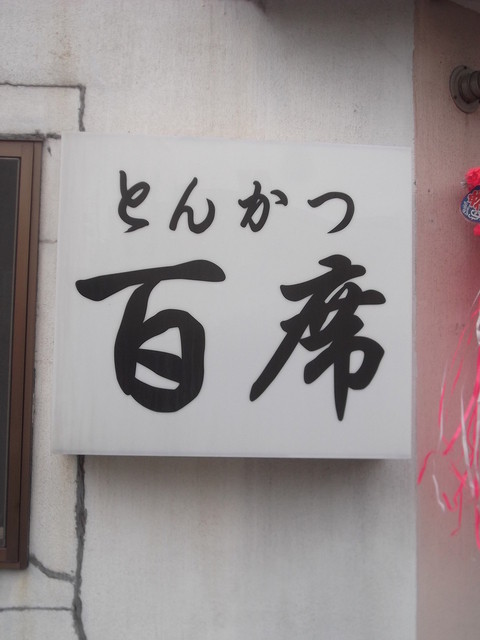 とんかつ
百席